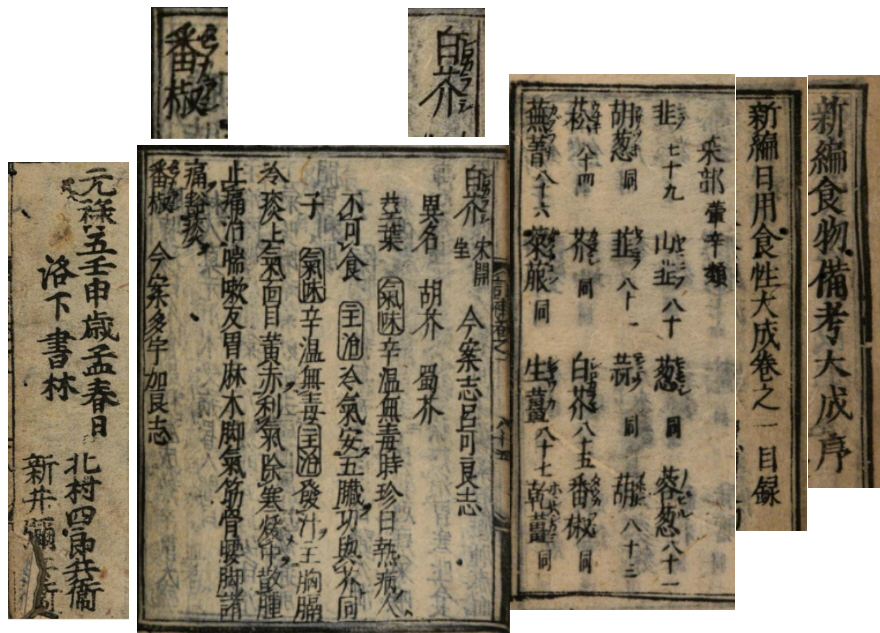 番椒
白芥
新編食物備考大成序
新編日用食性大成卷之一目録
菜部 葷辛類
韭 七十九 山韭 八十 葱 同 八十一
胡葱 同 八十一 蒜 同 葫 八十三
菘 八十四 芥 同 白芥 八十五 番椒 同
蕪菁 八十六 萊菔 同 生薑 八十七 乾薑 同
白芥 シロカラシ 宋開 今案志呂可良志
異名 胡芥 蜀芥
莖葉 氣味 辛温無毒時珍曰熱病人
不可食 主治 冷氣安五臓功與芥同
子 氣味 辛温無毒 主治 發汁主胸膈
冷痰上氣面目黄赤利氣除寒煖中散腫
止痛治喘嗽反胃麻木脚氣筋骨腰脚諸
痛 痰
番椒 今案多宇加良志
元禄五壬申歳孟春日
洛下書林
北村四郎兵衞
新井彌 兵衞